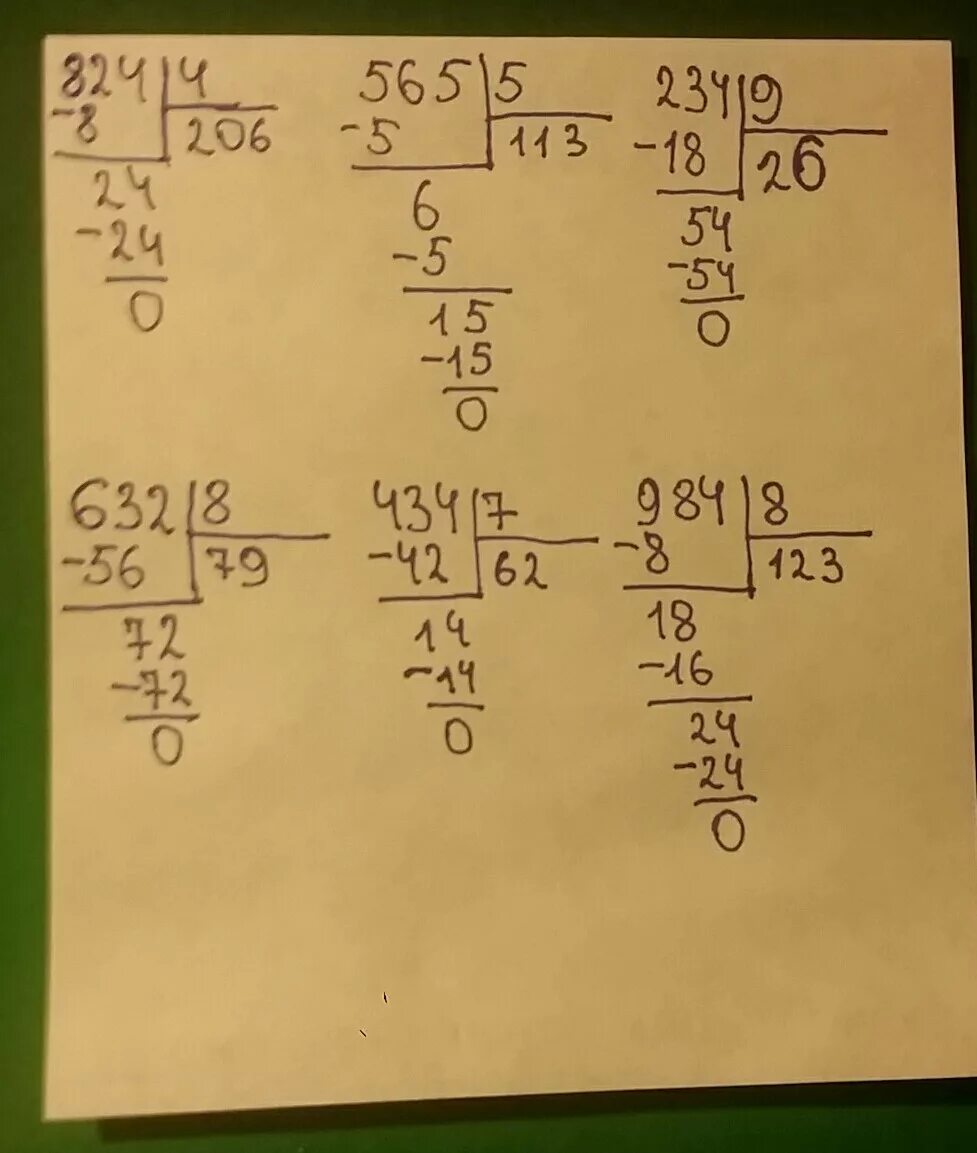 824 4
-8 206
24
-24
0
565 5
-5 113
6
-5
15
-15
0
234 9
-18 26
54
-54
0
632 8
-56 79
72
-72
0
434 7
-42 62
14
-14
0
984 8
-8 123
18
-16
24
-24
0